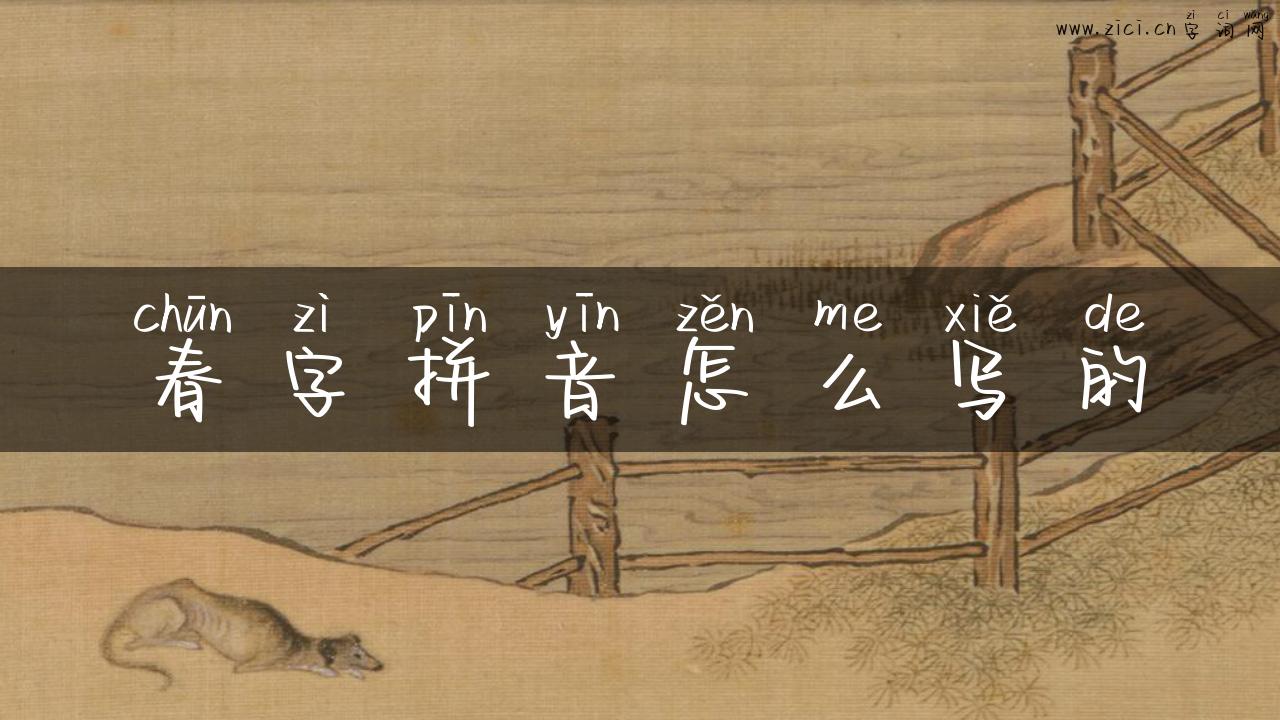 zi ci wang
www.zici.cn字词网
chūn zì pīn yīn zěn me xiě de
春字拼音怎么写的